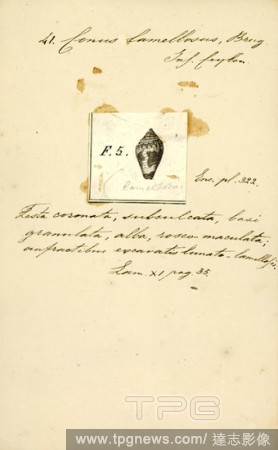 41. Conus lamellosus, Brug
Ins. Ceylon.
F. 5.
lamellosus
Enc. pl. 322.
Testa coronata, subsulcata, basi
granulata, alba, roseo maculata,
anfractibus excavatis lunato-lamellosis
Lam. XI pag. 35.
TPG
www.tpgnews.com/達志影像